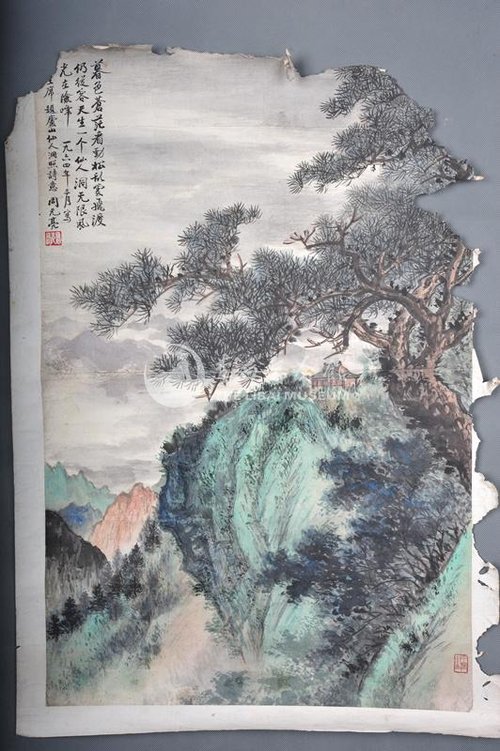 暮色蒼茫看勁松乱雲飛渡
仍從容天生一个仙人洞无限風
光在險峰 一九六四年月寫
主席題廬山仙人洞照詩意 周元亮
LIBAI MUSEUM